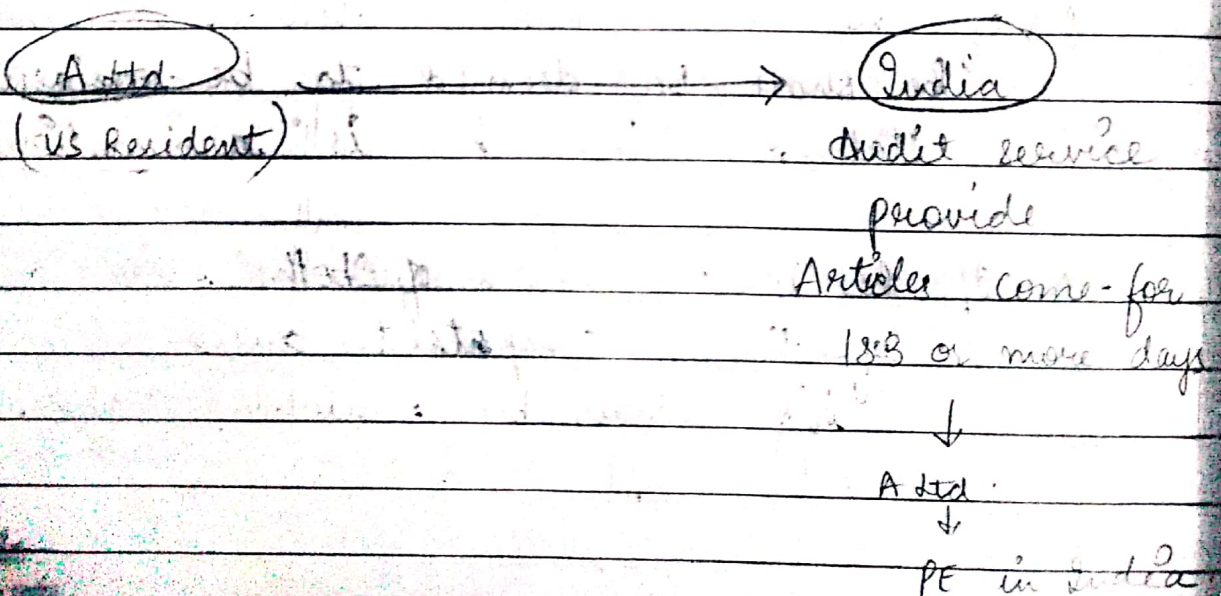 A Ltd. → India
(US Resident) Audit service
provide
Articles come for
183 or more days
↓
A Ltd.
↓
PE in India